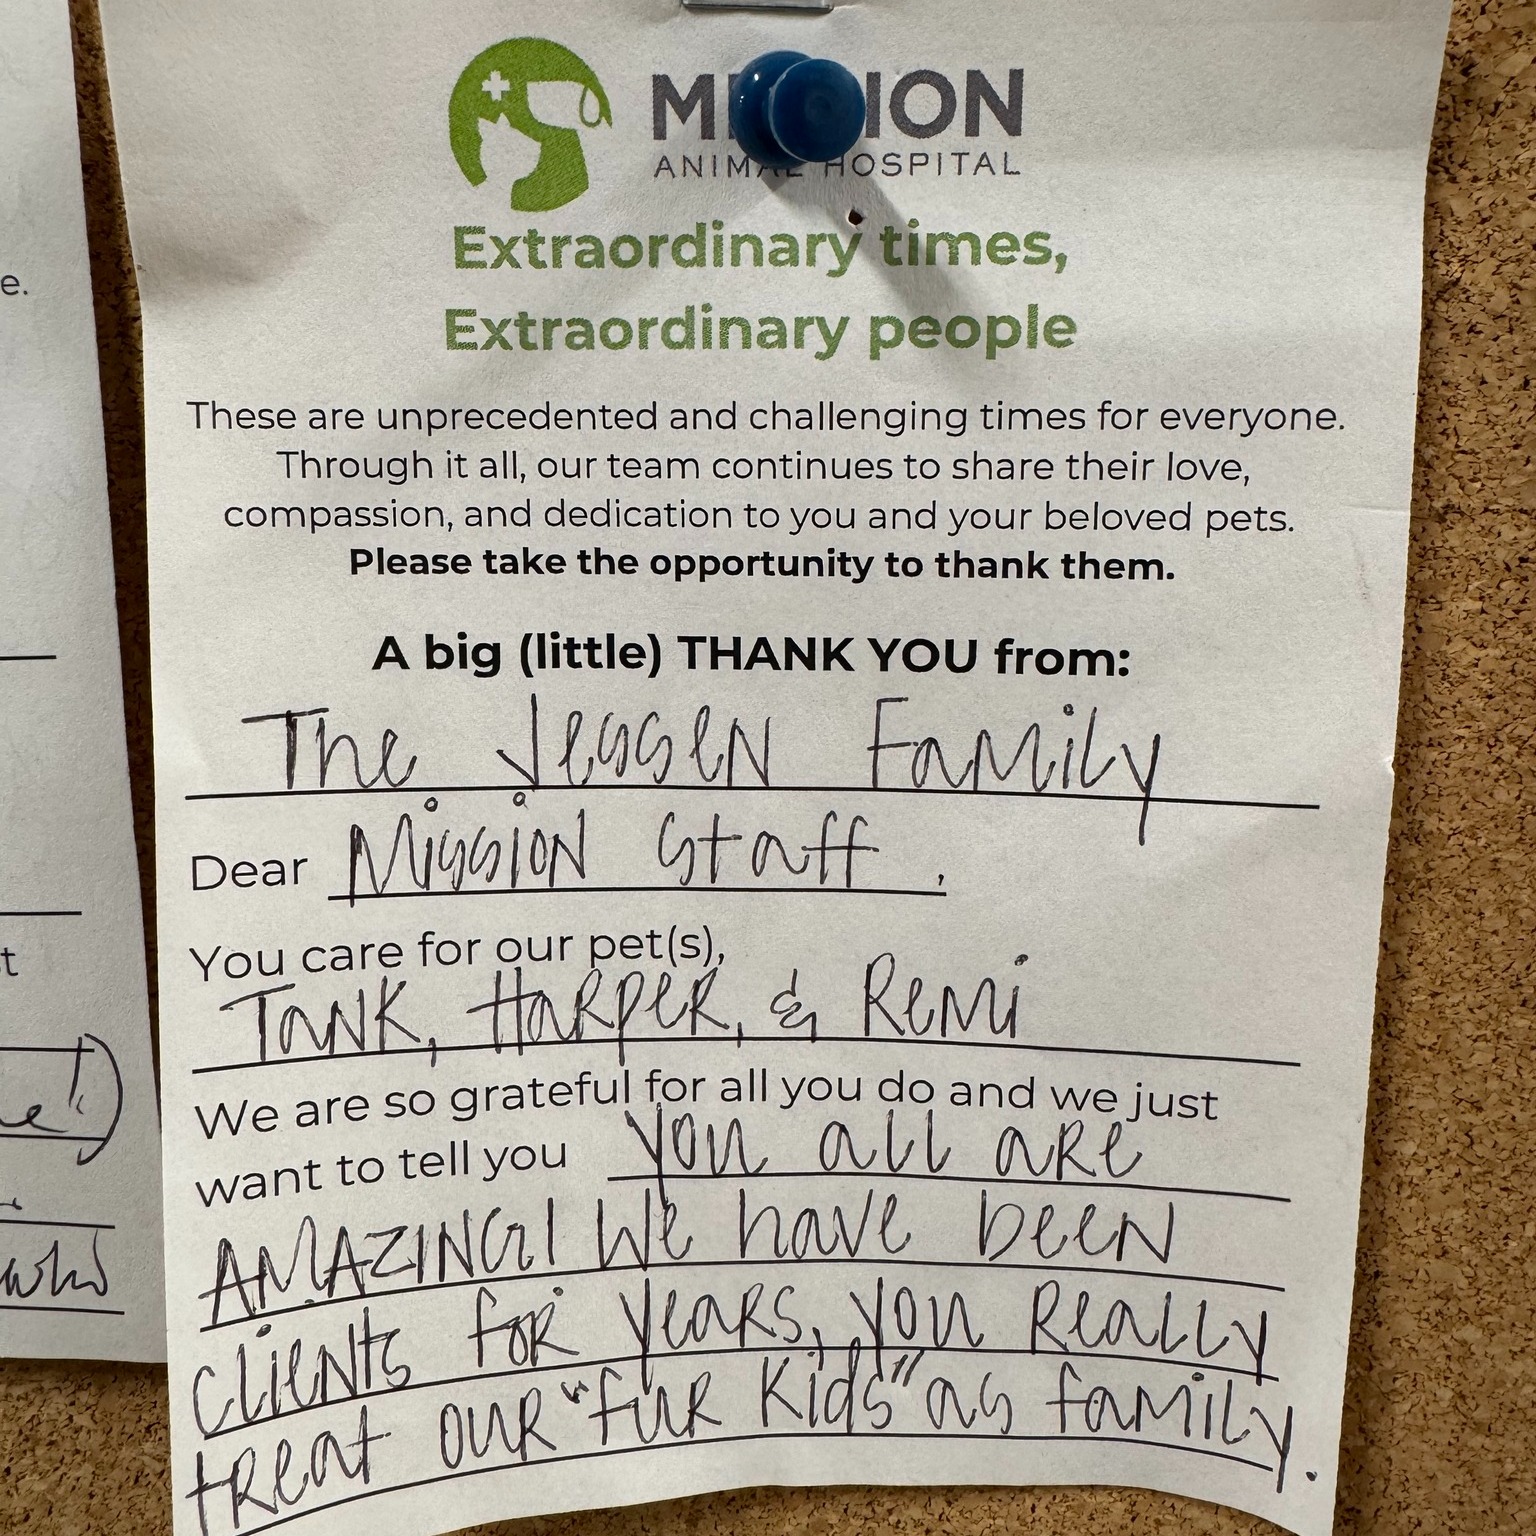 MISSION
ANIMAL HOSPITAL
Extraordinary times,
Extraordinary people
These are unprecedented and challenging times for everyone.
Through it all, our team continues to share their love,
compassion, and dedication to you and your beloved pets.
Please take the opportunity to thank them.
A big (little) THANK YOU from:
The Jessen Family
Dear Mission Staff,
You care for our pet(s),
Tank, Harper, & Remi
We are so grateful for all you do and we just
want to tell you you all are
AMAZING! We have been
clients for years, you really
treat our "fur kids" as family.